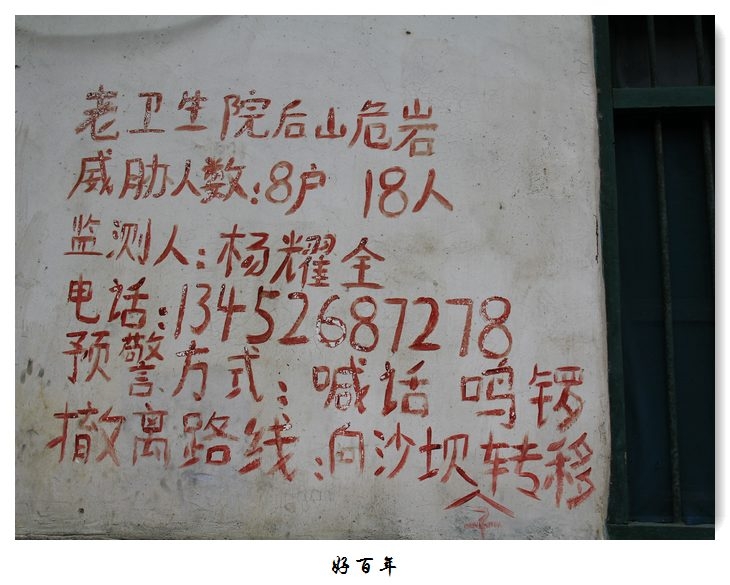 老卫生院后山危岩
威胁人数:8户 18人
监测人:杨耀全
电话:13452687278
预警方式:喊话 鸣锣
撤离路线:向沙坝转移
子
好百年